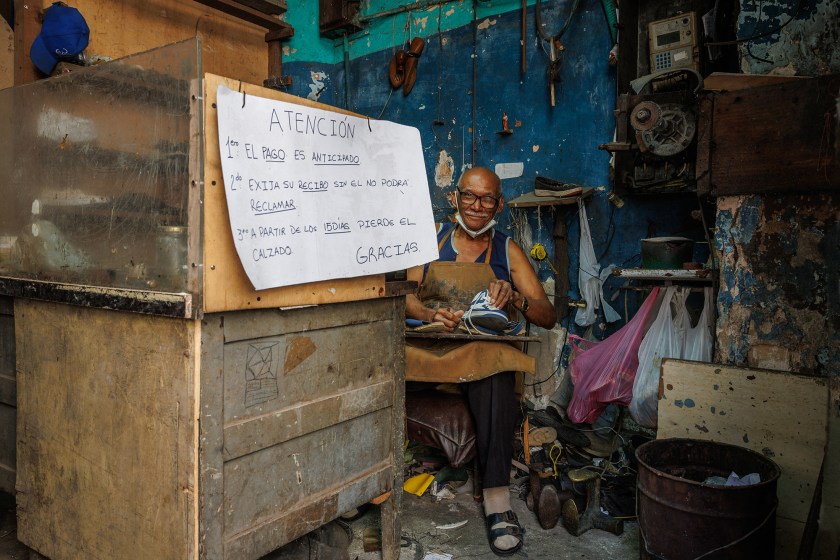 ATENCIÓN
1ero EL PAGO ES ANTICIPADO
2do EXIJA SU RECIBO SIN EL NO PODRA
RECLAMAR
3ro A PARTIR DE LOS 15DÍAS PIERDE EL
CALZADO.
GRACIAS.